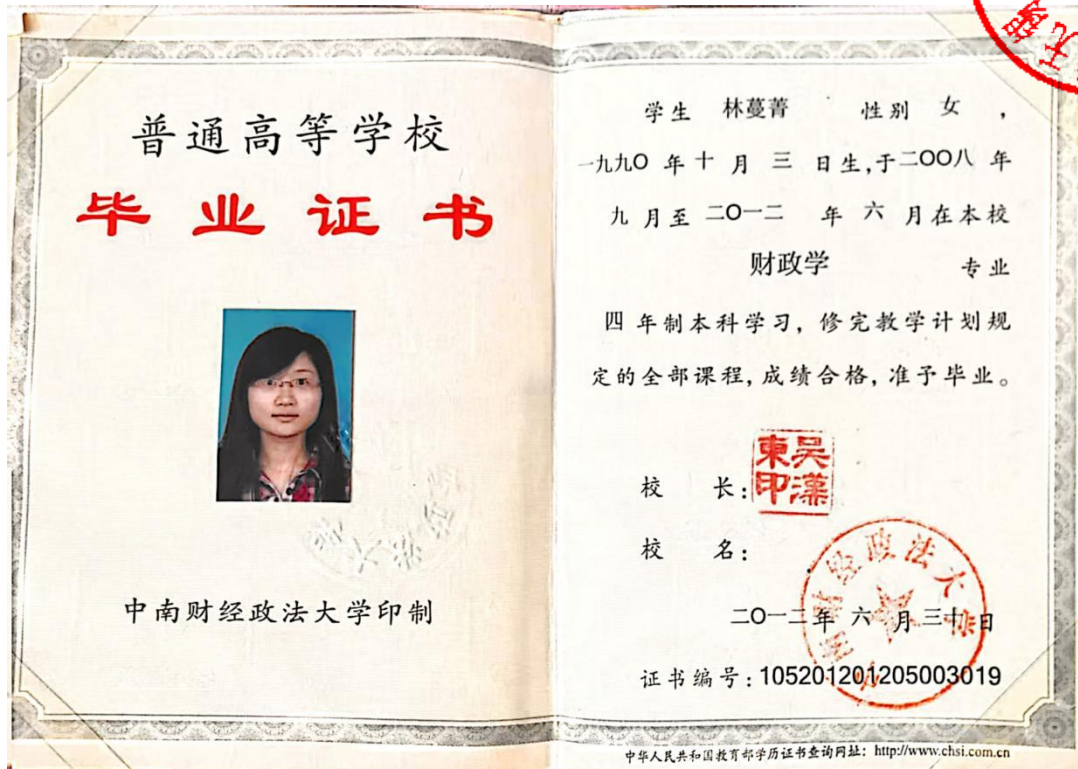 普通高等学校
毕业证书
中南财经政法大学印制
学生 林蔓菁 性别 女，
一九九〇年十月三日生，于二〇〇八年
九月至二〇一二年六月在本校
财政学 专业
四年制本科学习，修完教学计划规
定的全部课程，成绩合格，准予毕业。
校长：
吴汉東印
校名：
中南财经政法大学
二〇一二年六月三十日
证书编号：105201201205003019
中华人民共和国教育部学历证书查询网址：http://www.chsi.com.cn